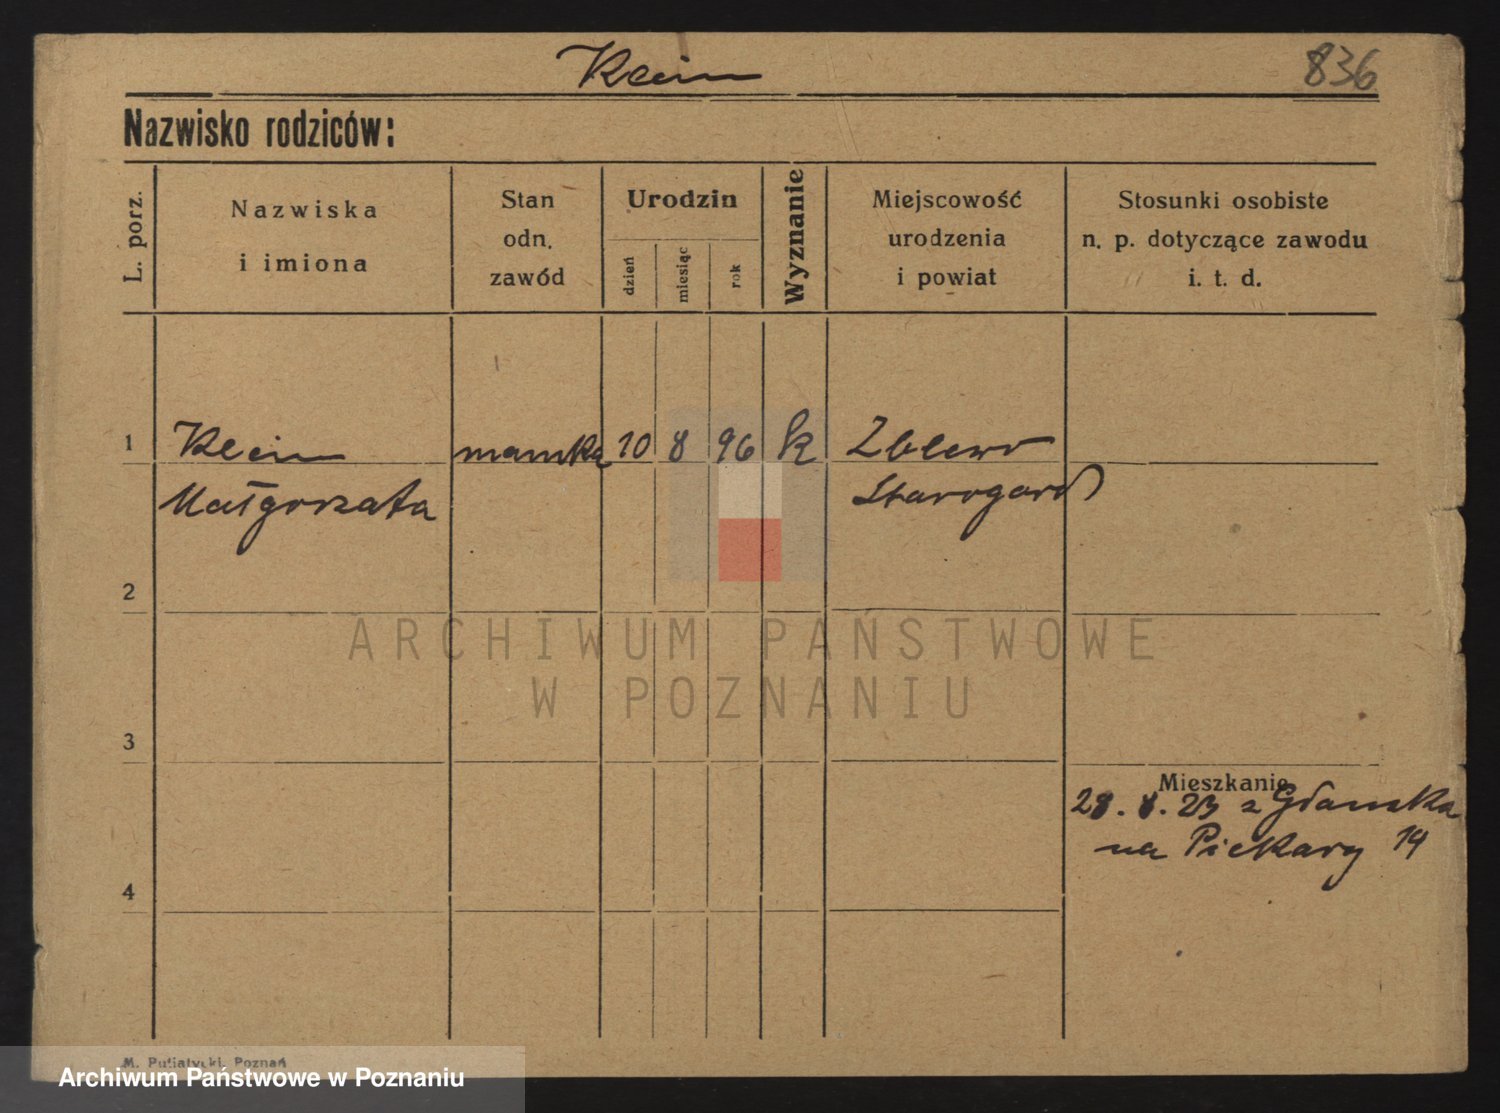 Klein
836
Nazwisko rodziców:
L. porz.
Nazwiska
i imiona
Stan
odn.
zawód
Urodzin
dzień
miesiąc
rok
Wyznanie
Miejscowość
urodzenia
i powiat
Stosunki osobiste
n. p. dotyczące zawodu
i. t. d.
1 Klein mamka 10 8 96 k Zblewo
Małgorzata Starogard
2
ARCHIWUM PAŃSTWOWE
W POZNANIU
3
Mieszkanie
28. 8. 23 z Gdańska
na Piekary 14
4
M. Putiatycki, Poznań
Archiwum Państwowe w Poznaniu